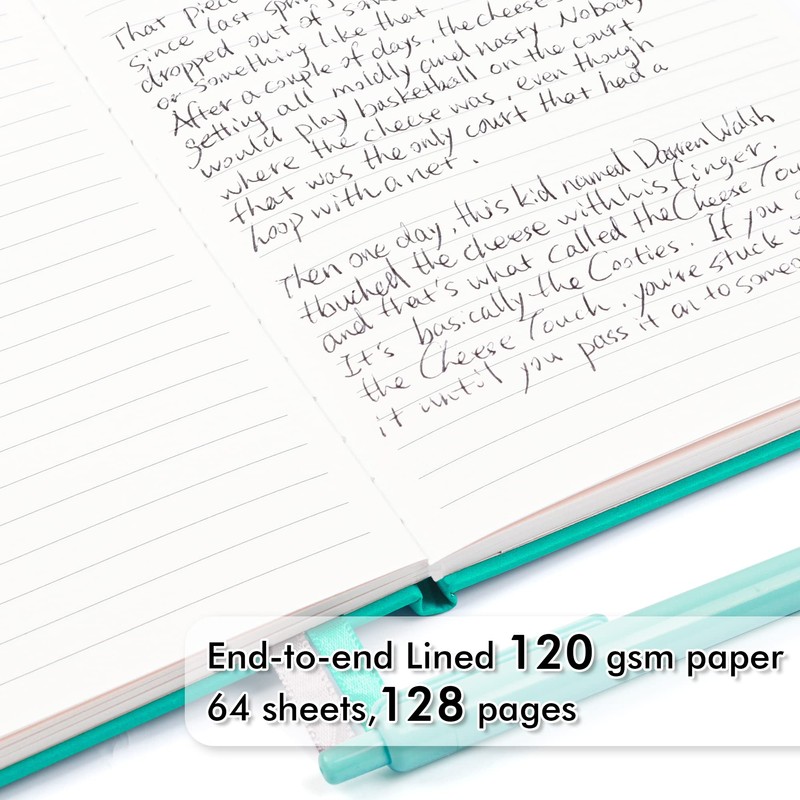 That piec
since last spri
dropped out of som
or something like that
After a couple of days, the cheese
getting all moldly and nasty. Nobody
would play basketball on the court
where the cheese was, even though
that was the only court that had a
hoop with a net.
Then one day, this kid named Darren Walsh
touched the cheese with his finger.
and that's what called the Cheese Tou
It's basically the Cooties. If you g
the Cheese Touch, you're stuck w
it until you pass it on to someo
End-to-end Lined 120 gsm paper
64 sheets,128 pages